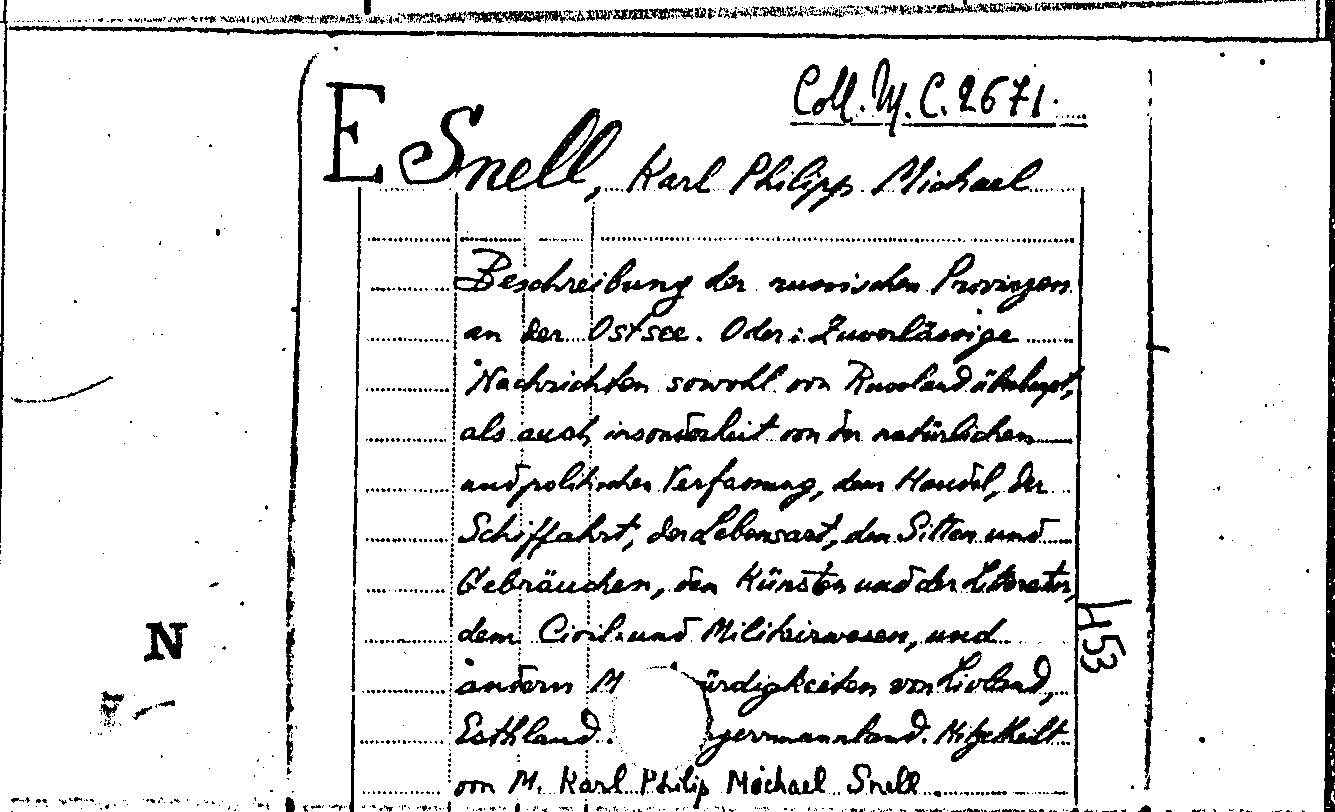 Coll. M. C. 2671.
E Snell, Karl Philipp Michael
Beschreibung der russischen Provinzen
an der Ostsee. Oder: Zuverlässige
Nachrichten sowohl von Russland überhaupt,
als auch insonderheit von der natürlichen
und politischen Verfassung, dem Handel, der
Schiffahrt, der Lebensart, den Sitten und
Gebräuchen, den Künsten und der Literatur,
dem Civil- und Militairwesen, und
andern M ürdigkeiten von Livland,
Esthland. germannland. Mitgetheilt
von M. Karl Philip Michael Snell.
453
N